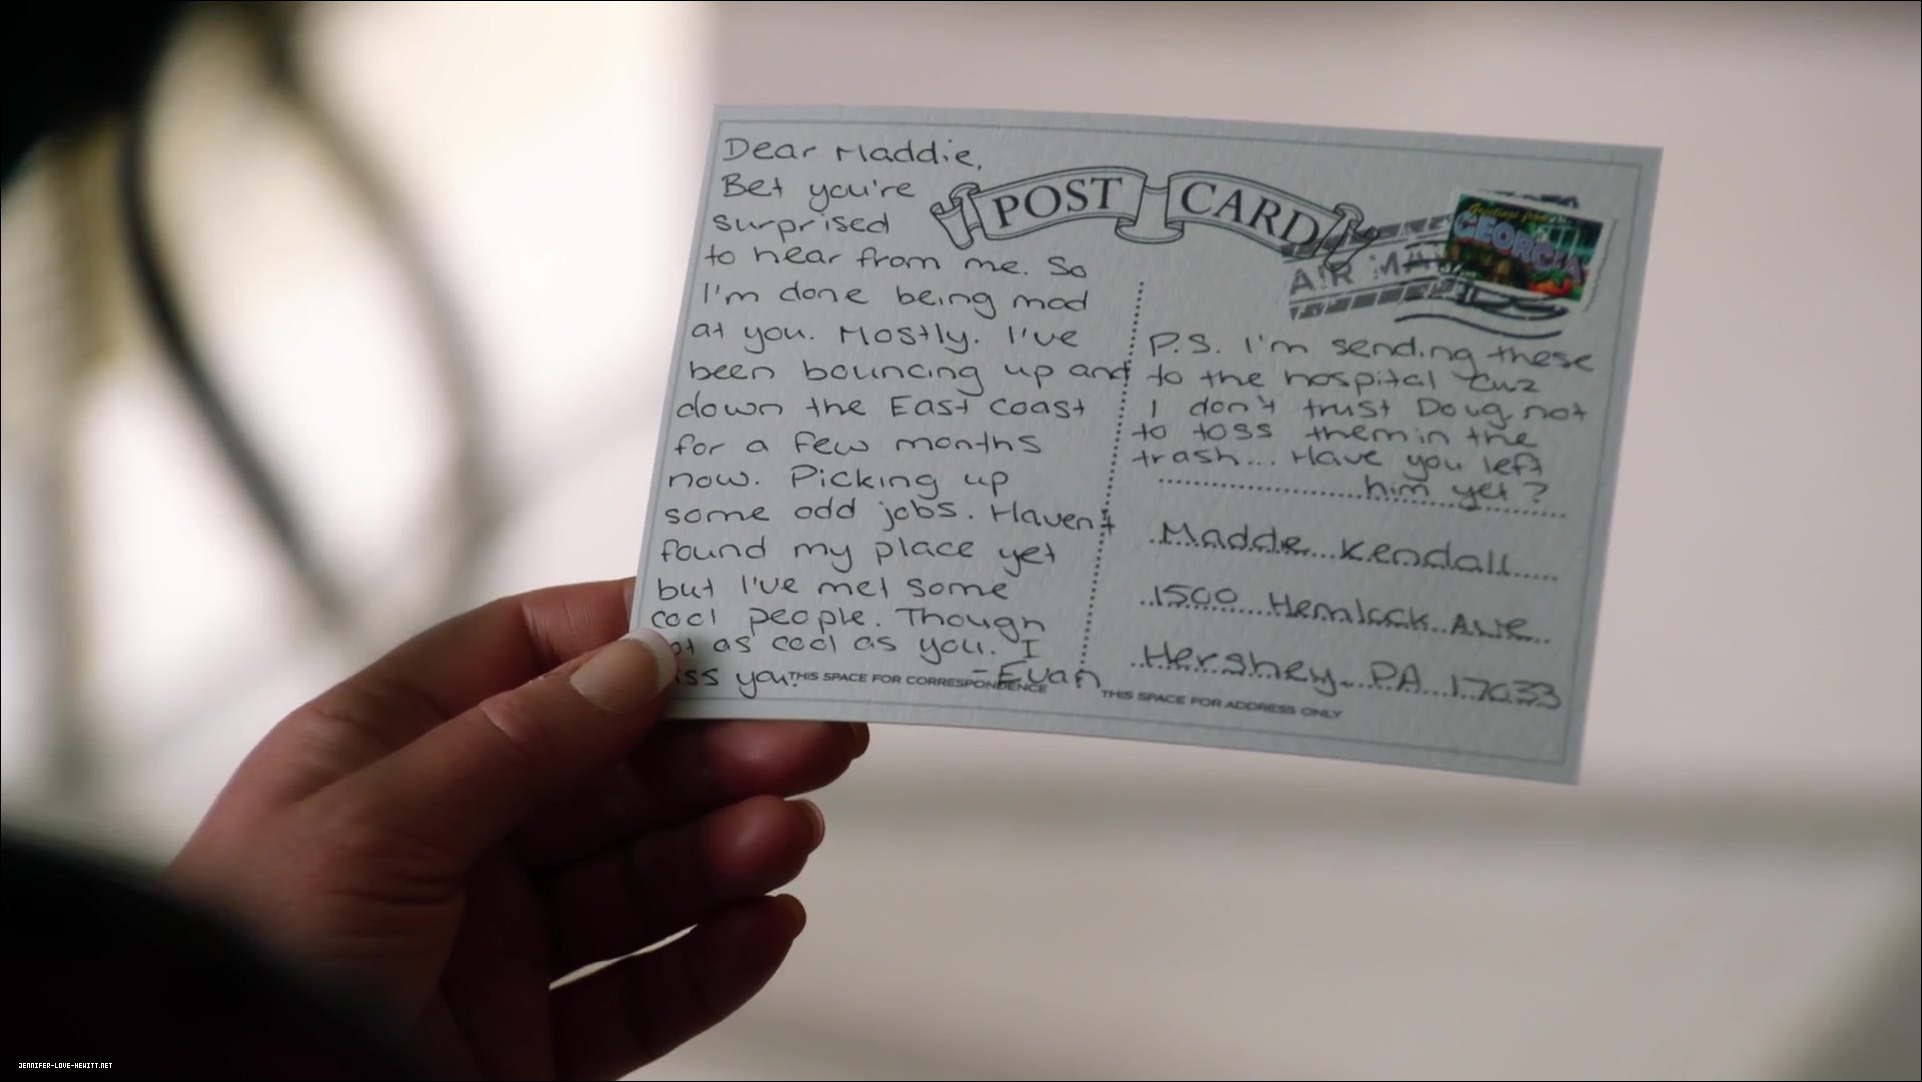 Dear Maddie,
Bet you're
surprised
to hear from me. So
I'm done being mad
at you. Mostly. I've
been bouncing up and
down the East Coast
for a few months
now. Picking up
some odd jobs. Haven't
found my place yet
but I've met some
cool people. Though
as cool as you. I
you.
-Evan
THIS SPACE FOR CORRESPONDENCE
POST CARD
AIR MAIL
Greetings from
GEORGIA
P.S. I'm sending these
to the hospital cuz
I don't trust Doug not
to toss them in the
trash... Have you left
him yet?
Maddie Kendall
1500 Hemlock Ave
Hershey, PA 17033
THIS SPACE FOR ADDRESS ONLY
JENNIFER-LOVE-HEWITT.NET